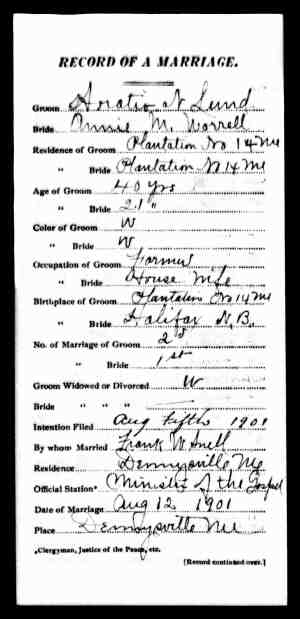 RECORD OF A MARRIAGE.
Groom Horatio N Lund
Bride Annie M. Worrell
Residence of Groom Plantation No 14 Me
" Bride Plantation No 14 Me
Age of Groom 40 yrs
" Bride 21 "
Color of Groom W
" Bride W
Occupation of Groom Farmer
" Bride House
Birthplace of Groom Plantation No 14 Me
" Bride Halifax N.B.
No. of Marriage of Groom 2d
" Bride 1st
Groom Widowed or Divorced W
Bride " " "
Intention Filed Aug Fifth 1901
By whom Married Frank W Snell
Residence Dennysville Me
Official Station* Minister of the Gospel
Date of Marriage Aug 12 1901
Place Dennysville Me
*Clergyman, Justice of the Peace, etc.
[Record continued over.]